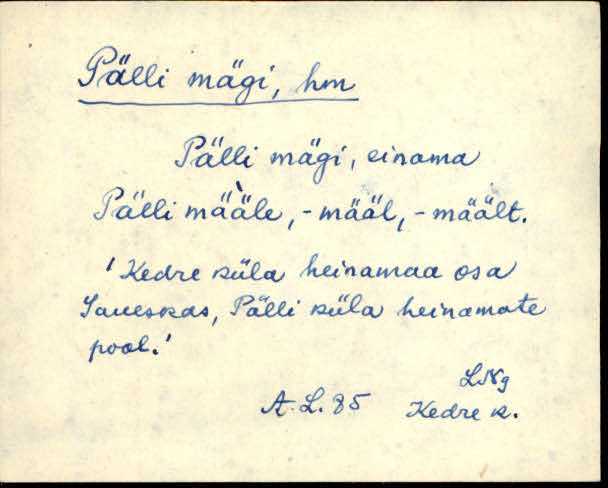 Pälli mägi, hm
Pälli mägi, einama
Pälli mä̀äle, -määl, -mäält.
'Kedre küla heinamaa osa
Saueskas, Pälli küla heinamate
pool.'
LNg
A. L. 85 Kedre k.